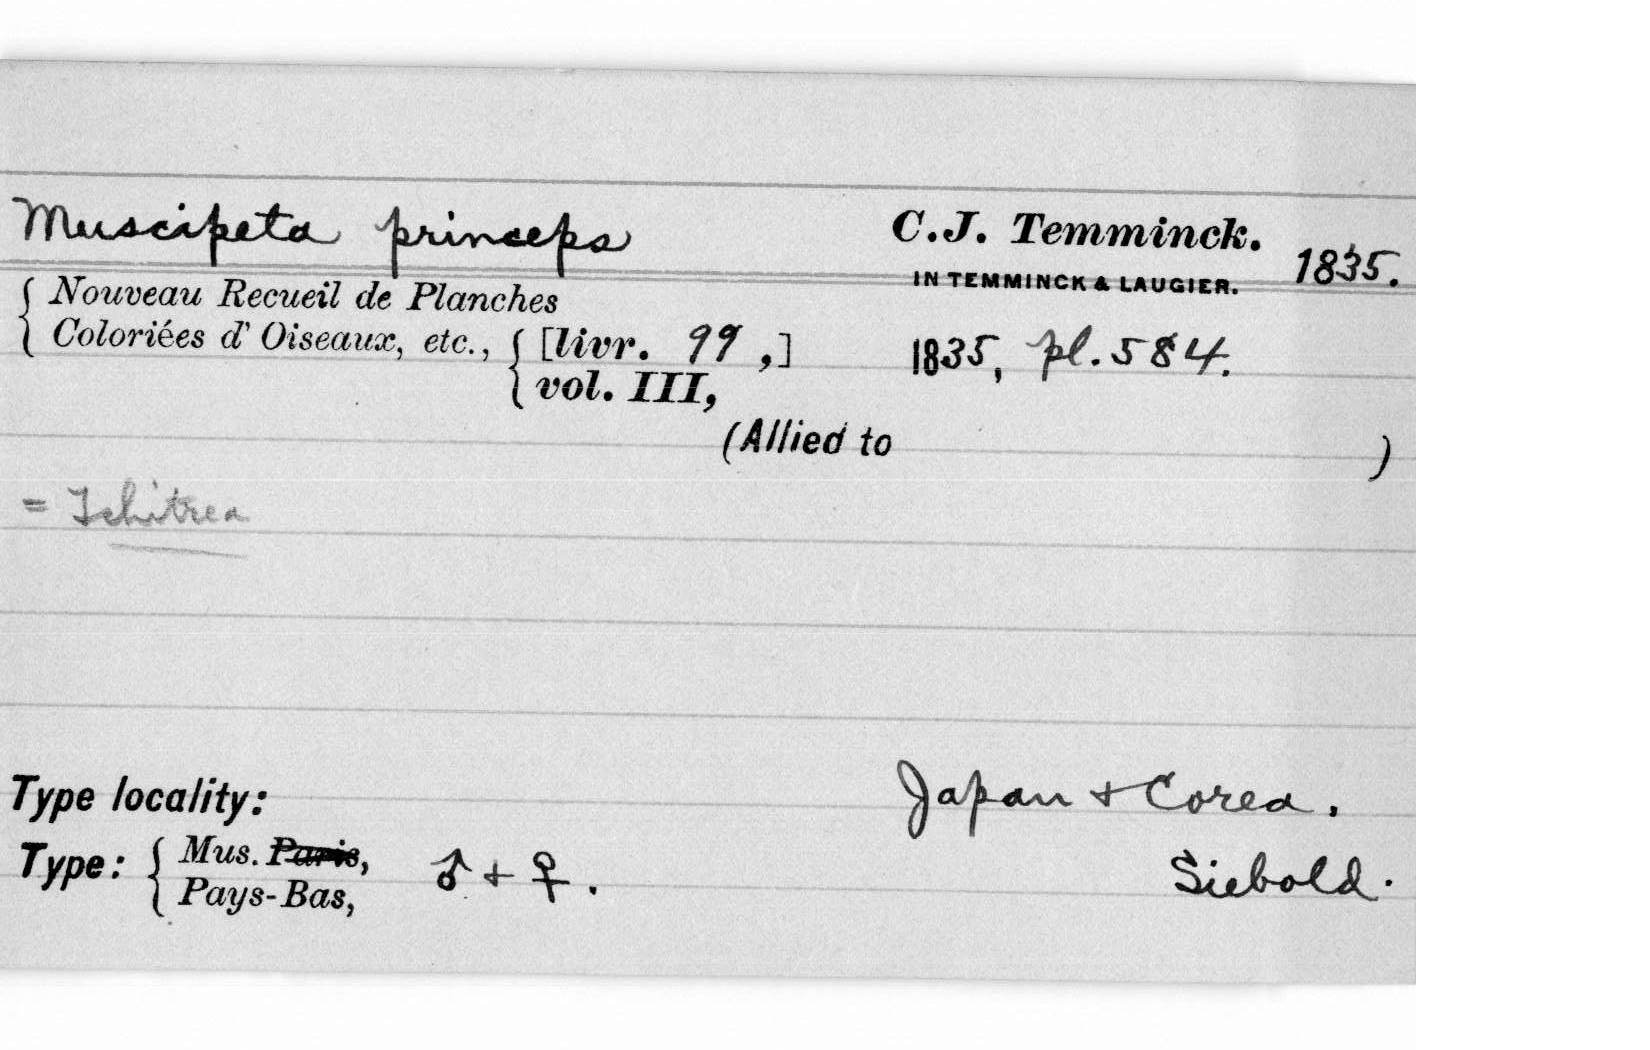 Muscipeta princeps C.J. Temminck. 1835.
IN TEMMINCK & LAUGIER.
{ Nouveau Recueil de Planches
Coloriées d' Oiseaux, etc., { [livr. 99 ,] 1835, pl. 584.
vol. III,
(Allied to )
= Tchitrea
Type locality: Japan + Corea.
Type: { Mus. Paris, ♂ + ♀. Siebold.
Pays-Bas,